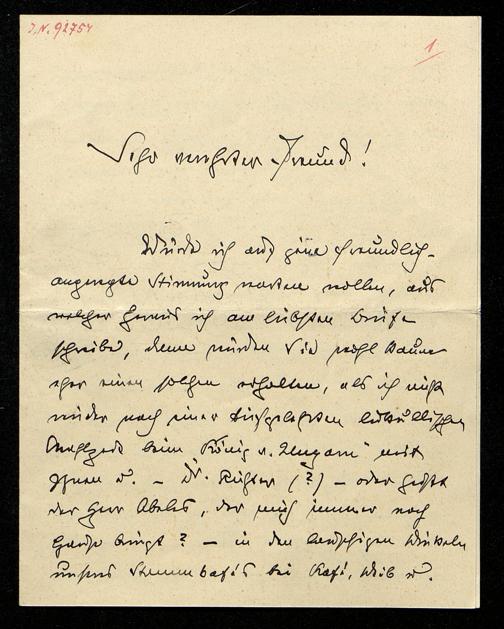 I.N. 92754
1
Sehr verehrter Freund!
Würde ich auf jene freundlich-
angeregte Stimmung warten wollen, aus
welcher heraus ich am liebsten Briefe
schreibe, dann würden Sie wohl kaum
eher einen solchen erhalten, als ich nicht
wieder nach einer lukullischen
Mahlzeit beim "König v. Ungarn" mit
Ihnen u. – Dr. Richter (?) – oder heißt
der Herr Abeles, der mich immer nach
Hause bringt? – in den lauschigen Winkeln
unseres Stammkafés bei Kafé, Weib u.